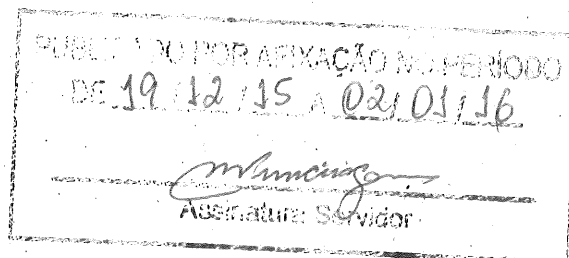 PUBLICADO POR AFIXAÇÃO NO PERÍODO
DE 19/12/15 A 02/01/16
Assinatura Servidor